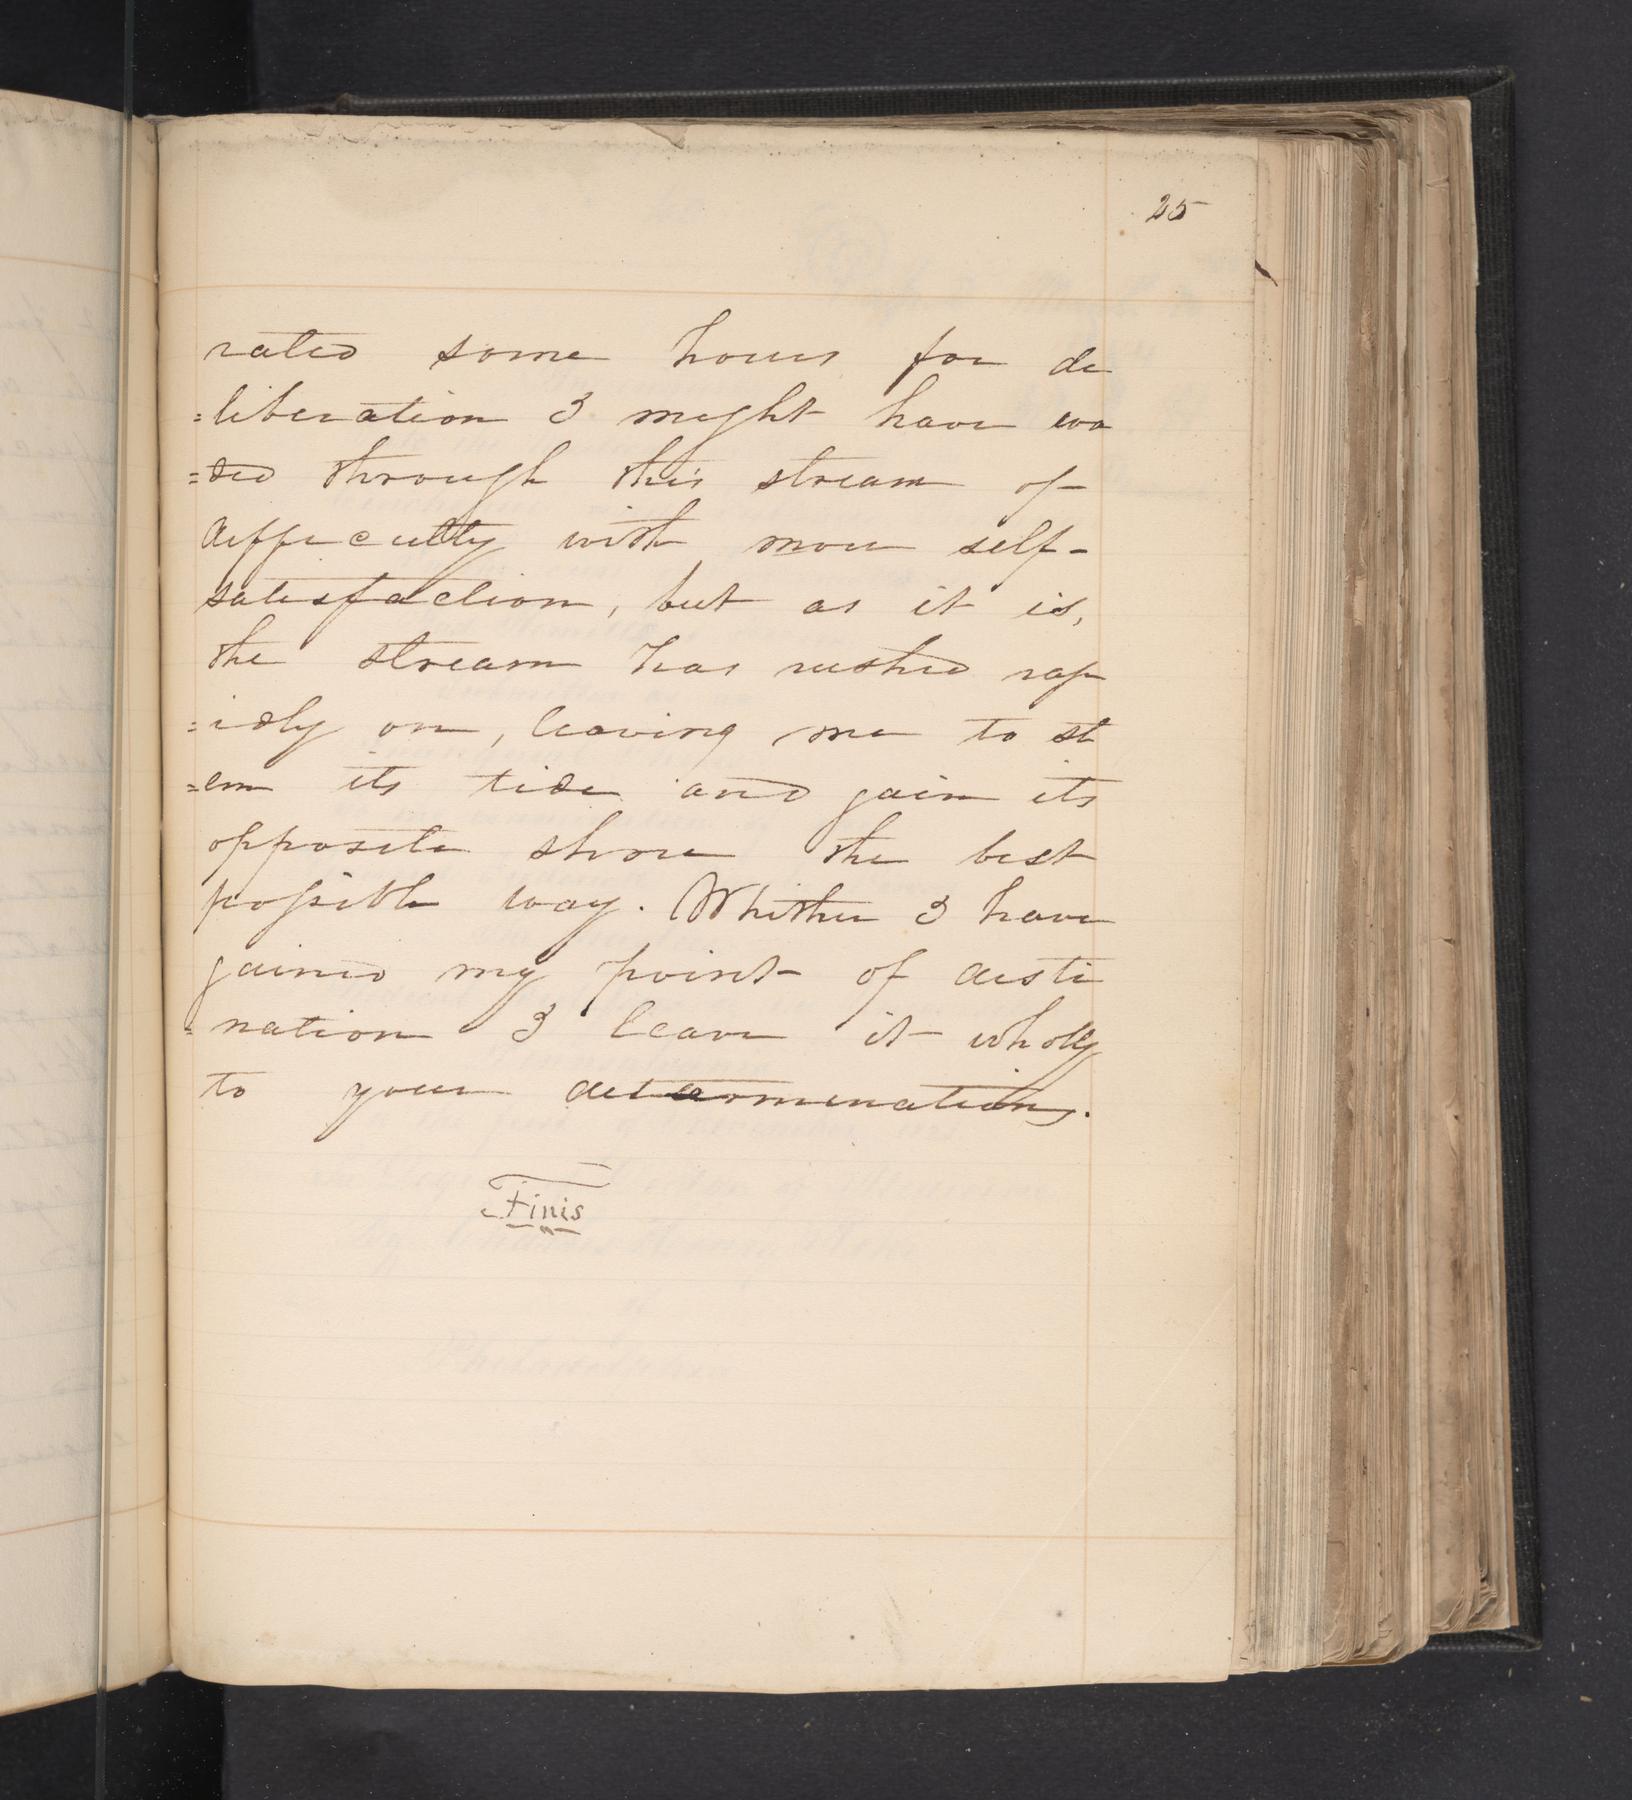 25
rated some hours for de
=liberation I might have wa
=ded through this stream of
difficulty with more self-
satisfaction, but as it is,
the stream has rushed rap
=idly on, leaving me to st
=em its tide and gain its
opposite shore the best
possible way. Whither I have
gained my point of desti
=nation I leave it wholly
to your determinations.
Finis